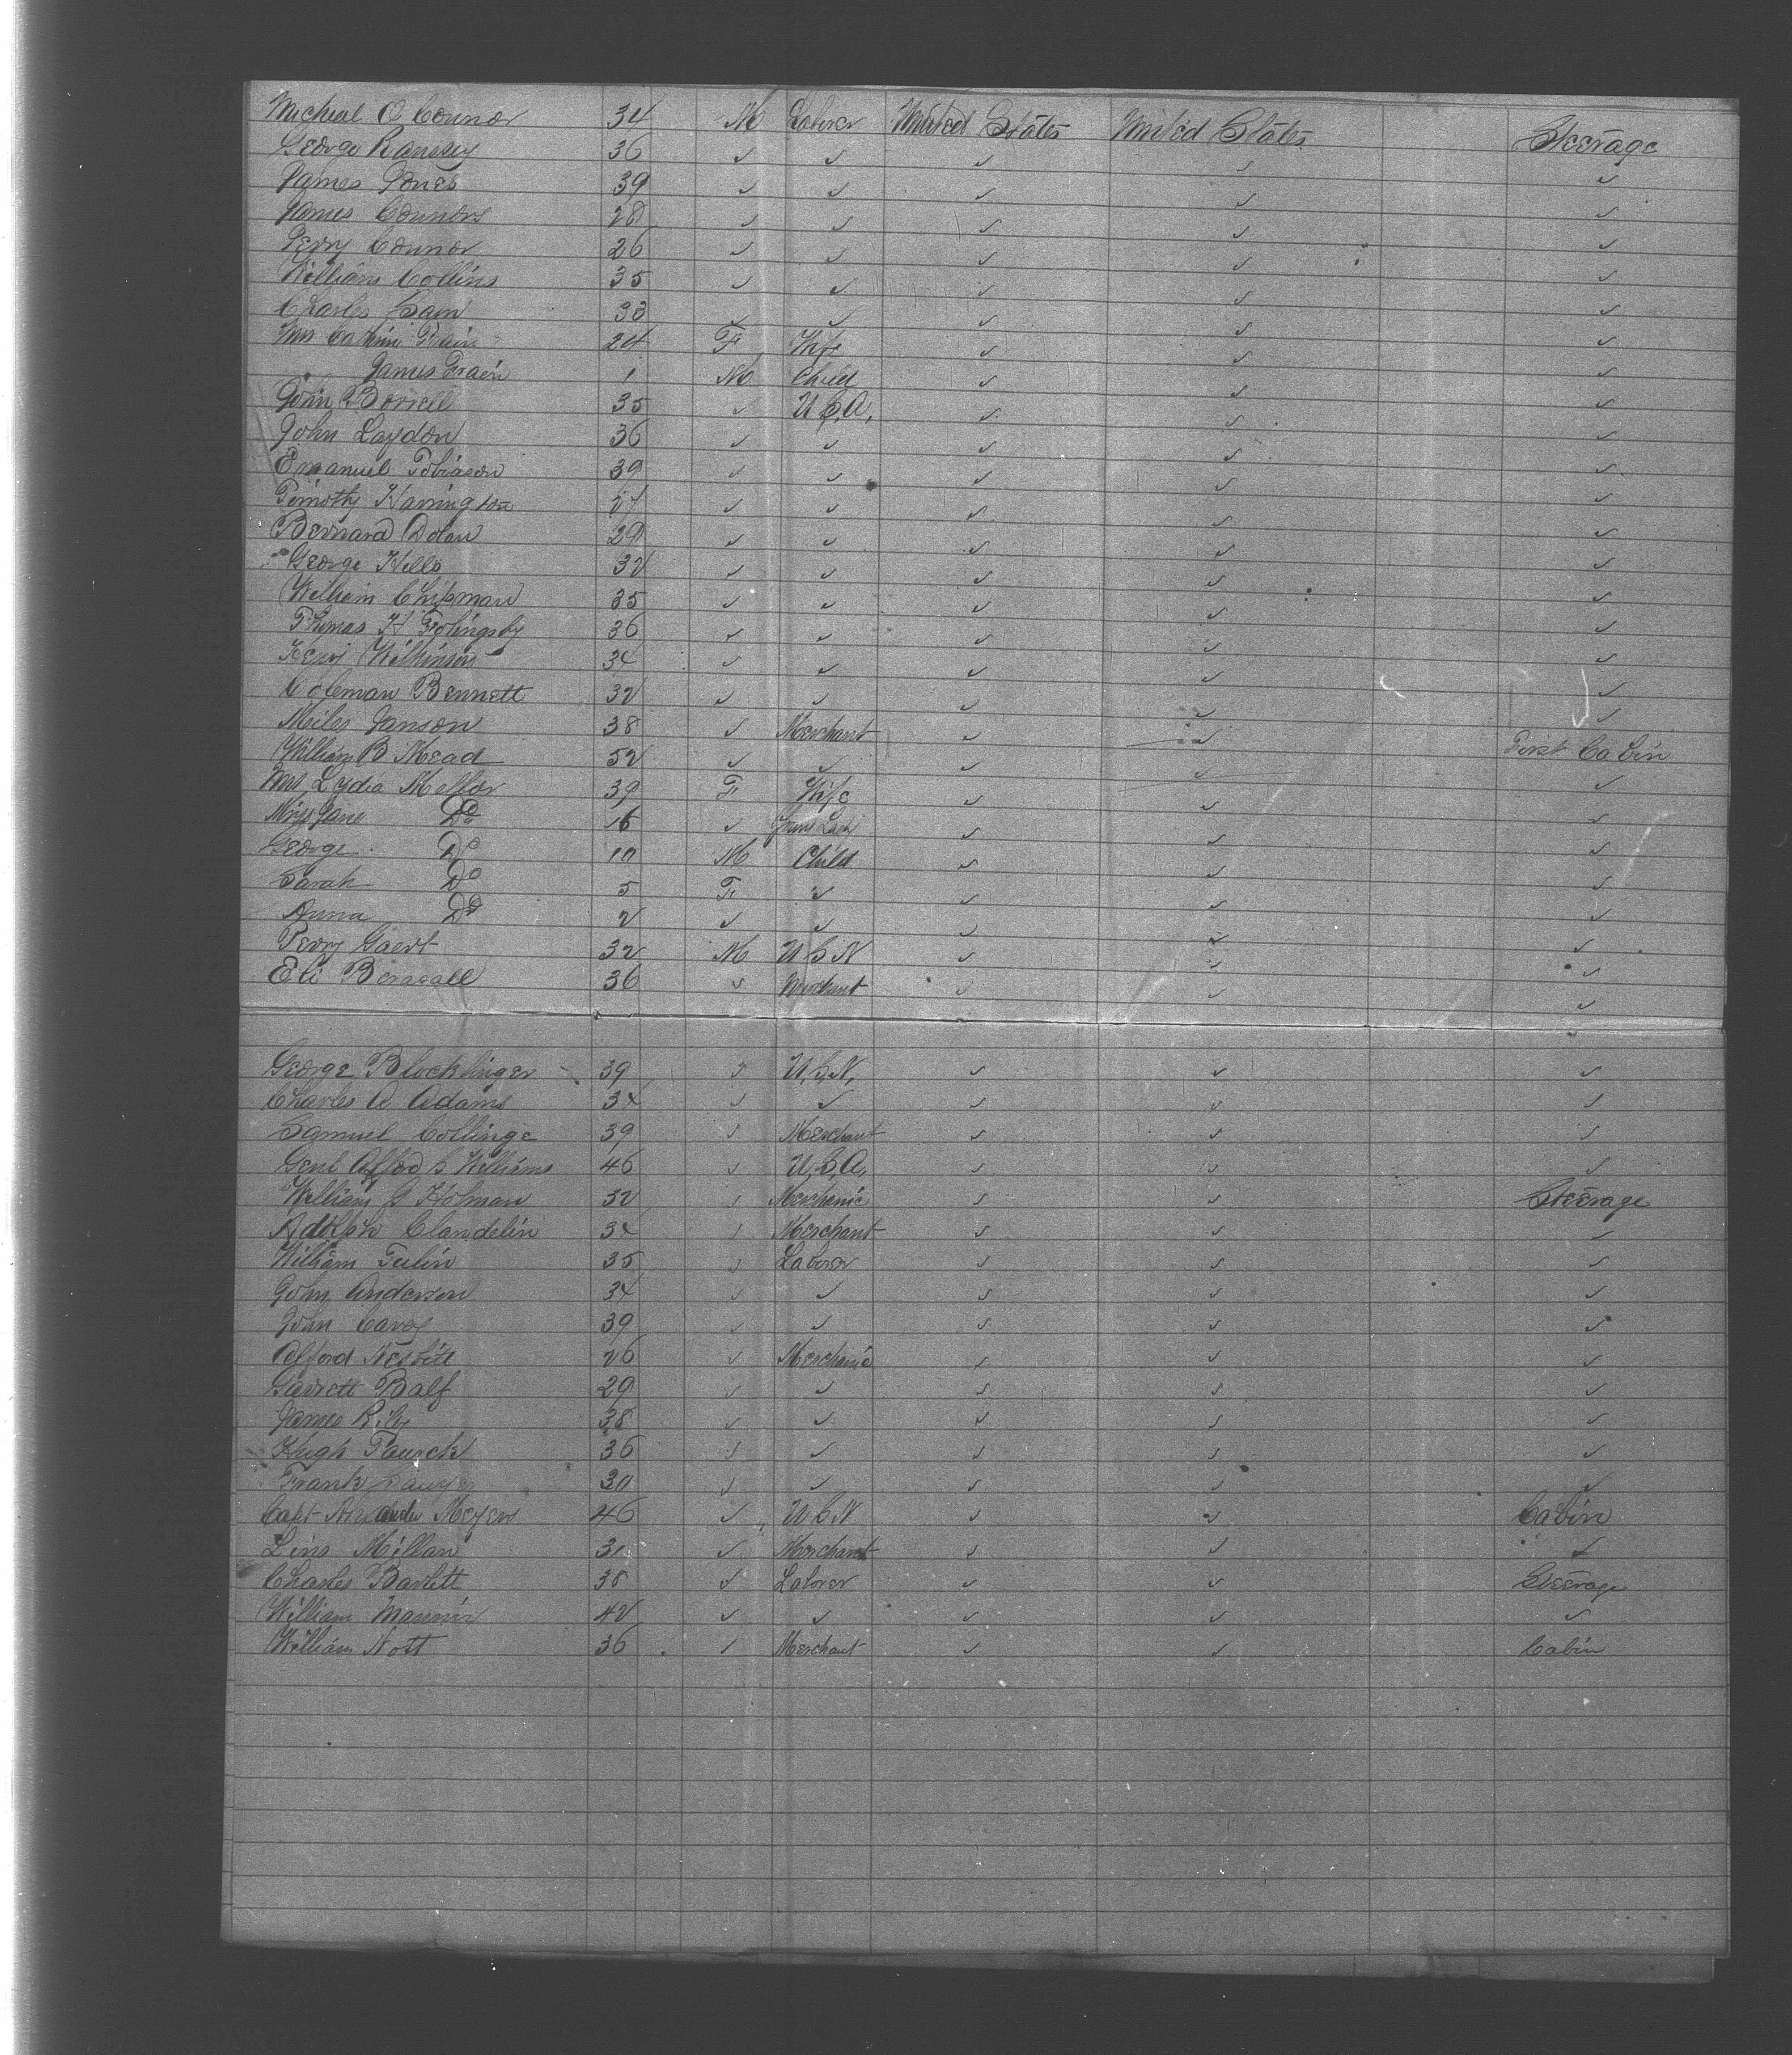 Micheal O Connor 34 M Laborer United States United States Steerage
George Ramsey 36 ✓ ✓ ✓ ✓ ✓
James Jones 39 ✓ ✓ ✓ ✓ ✓
James Connors 28 ✓ ✓ ✓ ✓ ✓
Perry Connor 26 ✓ ✓ ✓ ✓ ✓
William Collins 35 ✓ ✓ ✓ ✓ ✓
Charles 33 ✓ ✓ ✓ ✓ ✓
Mrs 24 F Wife ✓ ✓ ✓
James 1 M Child ✓ ✓ ✓
John Borrell 35 ✓ U.S.A. ✓ ✓ ✓
John Laydon 36 ✓ ✓ ✓ ✓ ✓
Emanuel Tobiason 39 ✓ ✓ ✓ ✓ ✓
Timothy Harrington ✓ ✓ ✓ ✓ ✓
Bernard Dolan 29 ✓ ✓ ✓ ✓ ✓
George Hills 32 ✓ ✓ ✓ ✓ ✓
William Chipman 35 ✓ ✓ ✓ ✓ ✓
Thomas H Folingsby 36 ✓ ✓ ✓ ✓ ✓
Henry Wilkinson 34 ✓ ✓ ✓ ✓ ✓
Coleman Bennett 32 ✓ ✓ ✓ ✓ ✓
Miles Janson 38 ✓ Merchant ✓ ✓ First Cabin
William B Mead 52 ✓ ✓ ✓ ✓ ✓
Mrs Lydia Mellor 39 F Wife ✓ ✓ ✓
Miss Jane Do 16 ✓ ✓ ✓ ✓
George Do 10 M Child ✓ ✓ ✓
Sarah Do 5 F ✓ ✓ ✓ ✓
Anna Do 2 ✓ ✓ ✓ ✓ ✓
Perry Gaert 32 M U S N ✓ ✓ ✓
Eli 36 ✓ Merchant ✓ ✓ ✓
George Blocklinger 39 ✓ U.S.N. ✓ ✓ ✓
Charles A Adams 34 ✓ ✓ ✓ ✓ ✓
Samuel Collinge 39 ✓ Merchant ✓ ✓ ✓
Genl Alfred S Williams 46 ✓ U.S.A. ✓ ✓ ✓
William J Holman 52 ✓ Merchanic ✓ ✓ Steerage
Adolph Clandelin 34 ✓ Merchant ✓ ✓ ✓
William Tulin 35 ✓ Laborer ✓ ✓ ✓
John Anderson 34 ✓ ✓ ✓ ✓ ✓
John Carey 39 ✓ ✓ ✓ ✓ ✓
Alford Nesbitt 26 ✓ Merchanic ✓ ✓ ✓
Garrett Balf 29 ✓ ✓ ✓ ✓ ✓
James Rily 38 ✓ ✓ ✓ ✓ ✓
Hugh 36 ✓ ✓ ✓ ✓ ✓
Frank 30 ✓ ✓ ✓ ✓ ✓
Capt Meyers 46 ✓ U S N ✓ ✓ Cabin
Millan 31 ✓ Merchant ✓ ✓ ✓
Charles Bartlett 38 ✓ Laborer ✓ ✓ Steerage
William 42 ✓ ✓ ✓ ✓ ✓
William Nott 36 ✓ Merchant ✓ ✓ Cabin